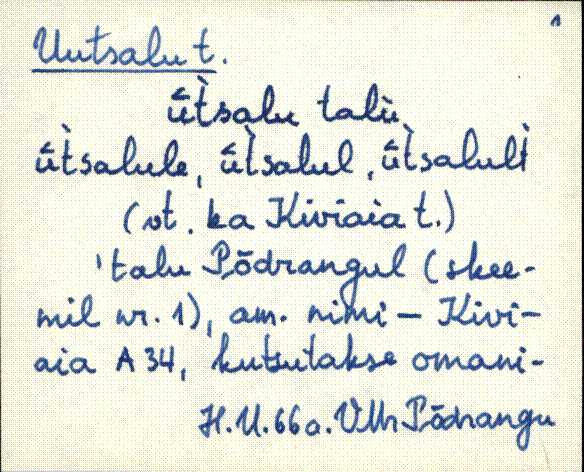 1
Uutsalu t.
ū́t̀salu talù
ū́t̀salule, ū́t̀salul, ū́t̀salult̀
(vt. ka Kiviaia t.)
'talu Põdrangul (skee-
mil nr. 1), am. nimi — Kivi-
aia A 34, kutsutakse omani-
H.U. 66a. VMr Põdrangu